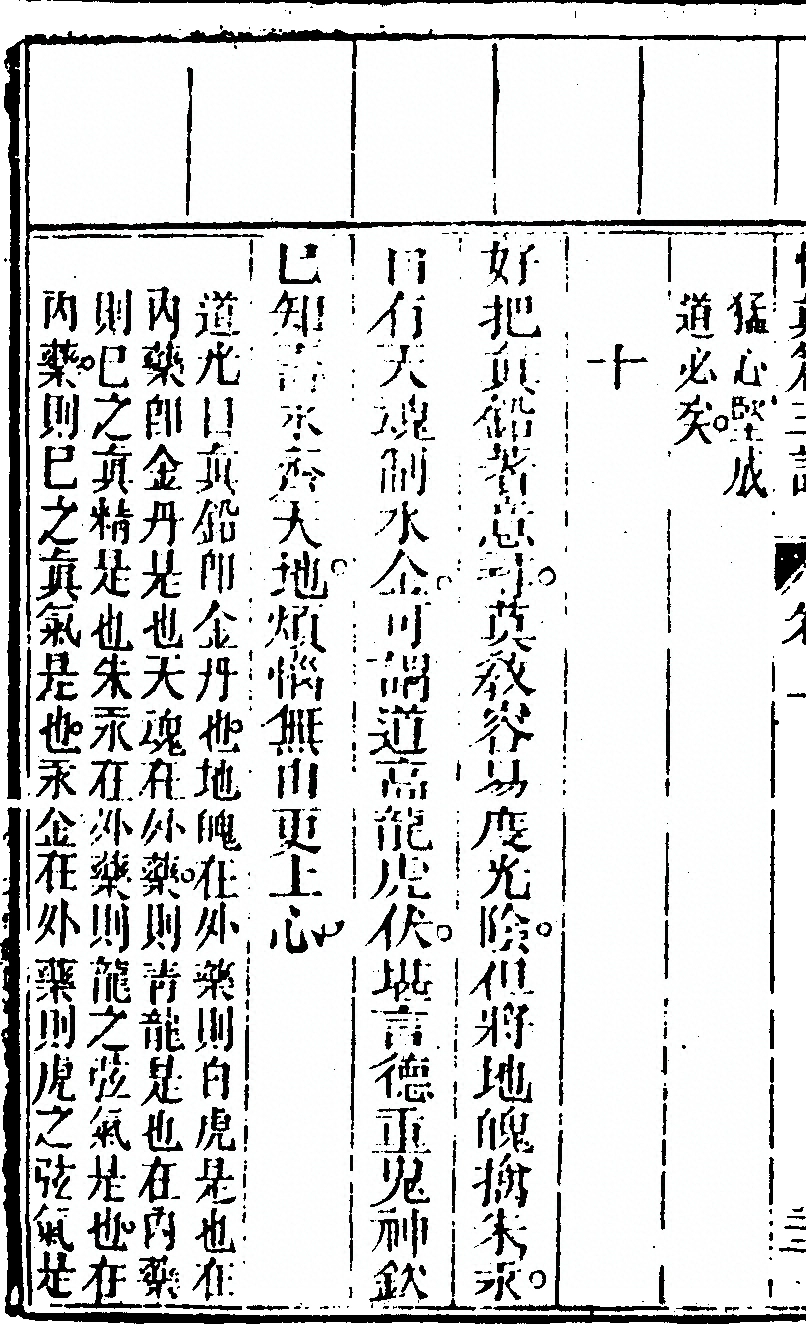 猛心堅成
道必矣
十
好把真鉛著意尋莫教容易度光陰但將地魄擒朱汞
自有天魂制水金可謂道高龍虎伏堪言德重鬼神欽
巳知壽永齊天地煩惱無由更上心
道光曰真鉛即金丹也地魄在外藥則白虎是也在
內藥即金丹是也天魂在外藥則青龍是也在內藥
則巳之真精是也朱汞在外藥則龍之弦氣是也在
內藥則巳之真氣是也水金在外藥則虎之弦氣是